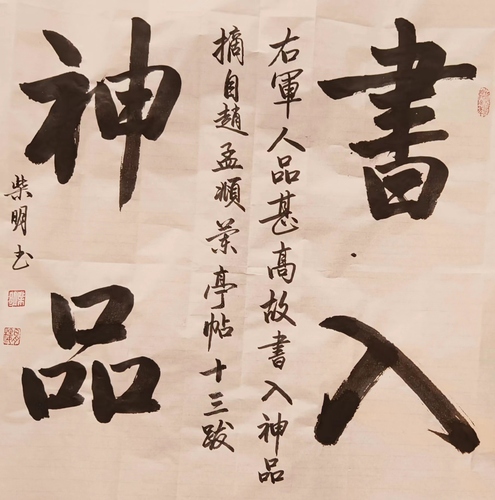 書入
右軍人品甚高故書入神品
摘自趙孟順蘭亭帖十三跋
神品
柴明书